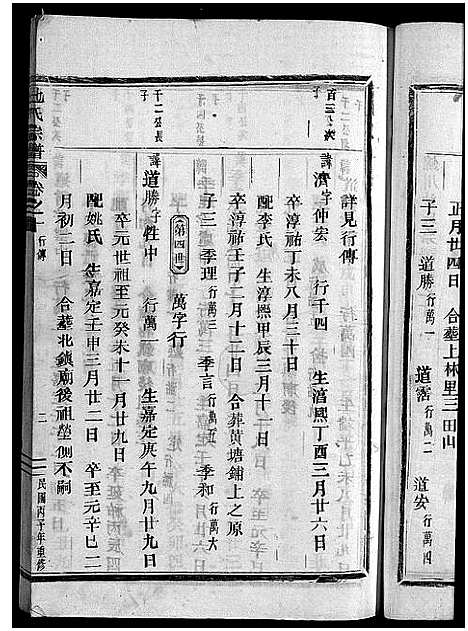 正月廿四日 合葬上林里三田山
子三 道勝行萬一 道霑行萬二 道安行萬四
詳見行傳
百三公次子
諱濟字仲宏 行千四 生淳熙丁酉三月廿六日
卒淳祐丁未八月三十日
配李氏 生淳熙甲辰三月十一日
卒淳祐壬子二月十二日 合葬黄塘鋪上之原
子三 季理行萬三 季言行萬五 季和行萬大
第四世 萬字行
千二公長子
諱道勝字性中 行萬一 生嘉定庚午九月廿九日
卒元世祖至元癸未十一月廿九日
配姚氏 生嘉定壬申三月廿二日 卒至元辛巳二
月初二日 合葬北鎮廟後祖塋側不嗣
氏宗譜 卷之一 行傳 二 民國丙子年重修